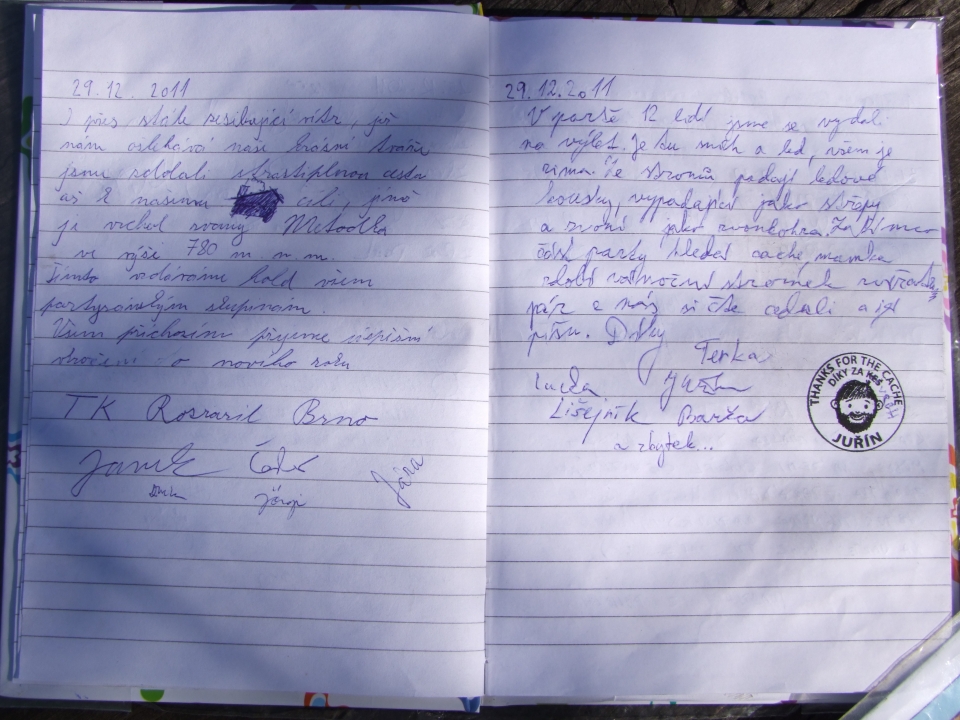 29.12. 2011
I přes stále sesilující vítr, jež
nám ošlehává naše krásné tváře
jsme zdolali strastiplnou cestu
až k našemu cíli, jímž
je vrchol
ve výši 780 m.n.m.
Tímto vzdáváme hold všem
partyzánským skupinám.
Všem příchozím přejeme úspěšné
vkročení do nového roku
TK Rozrazil Brno
Janek
Jára
29.12.2011
V partě 12 lidí jsme se vydali
na výlet. Je tu sníh a led, všem je
zima. Ze stromů padají ledové
kousky, vypadající jako střepy
a zvoní jako zvonkohra. Zatímco
část party hledá cache, mamka
zdobí vánoční stromek
pár z nás si čte a já
píšu. Díky
Terka
Lucka
Lišejník Barča
a zbytek...
THANKS FOR THE CACHE
DÍKY ZA KEŠ
JUŘÍN